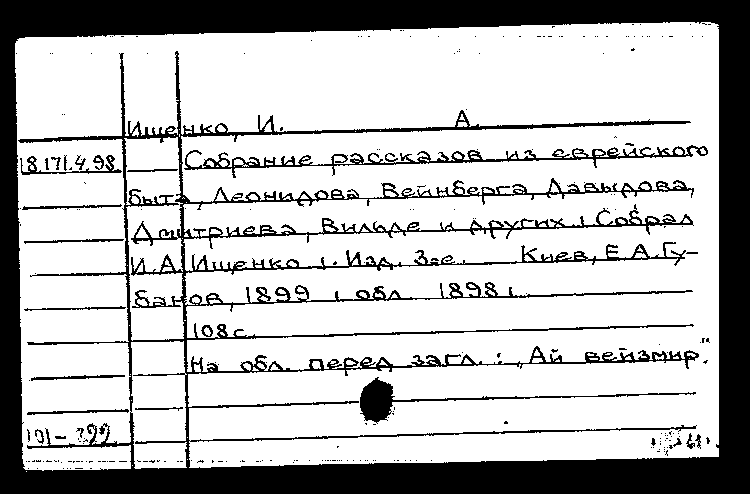 Ищенко, И. А.
18.171.4.98 Собрание рассказов из еврейского
быта, Леонидова, Вейнберга, Давыдова,
Дмитриева, Вильде и других / Собрал
И.А. Ищенко /. Изд. 3-е. Киев, Е.А. Гу-
банов, 1899 / обл. 1898 /.
108 с.
На обл. перед загл.: „Ай вейзмир".
101-